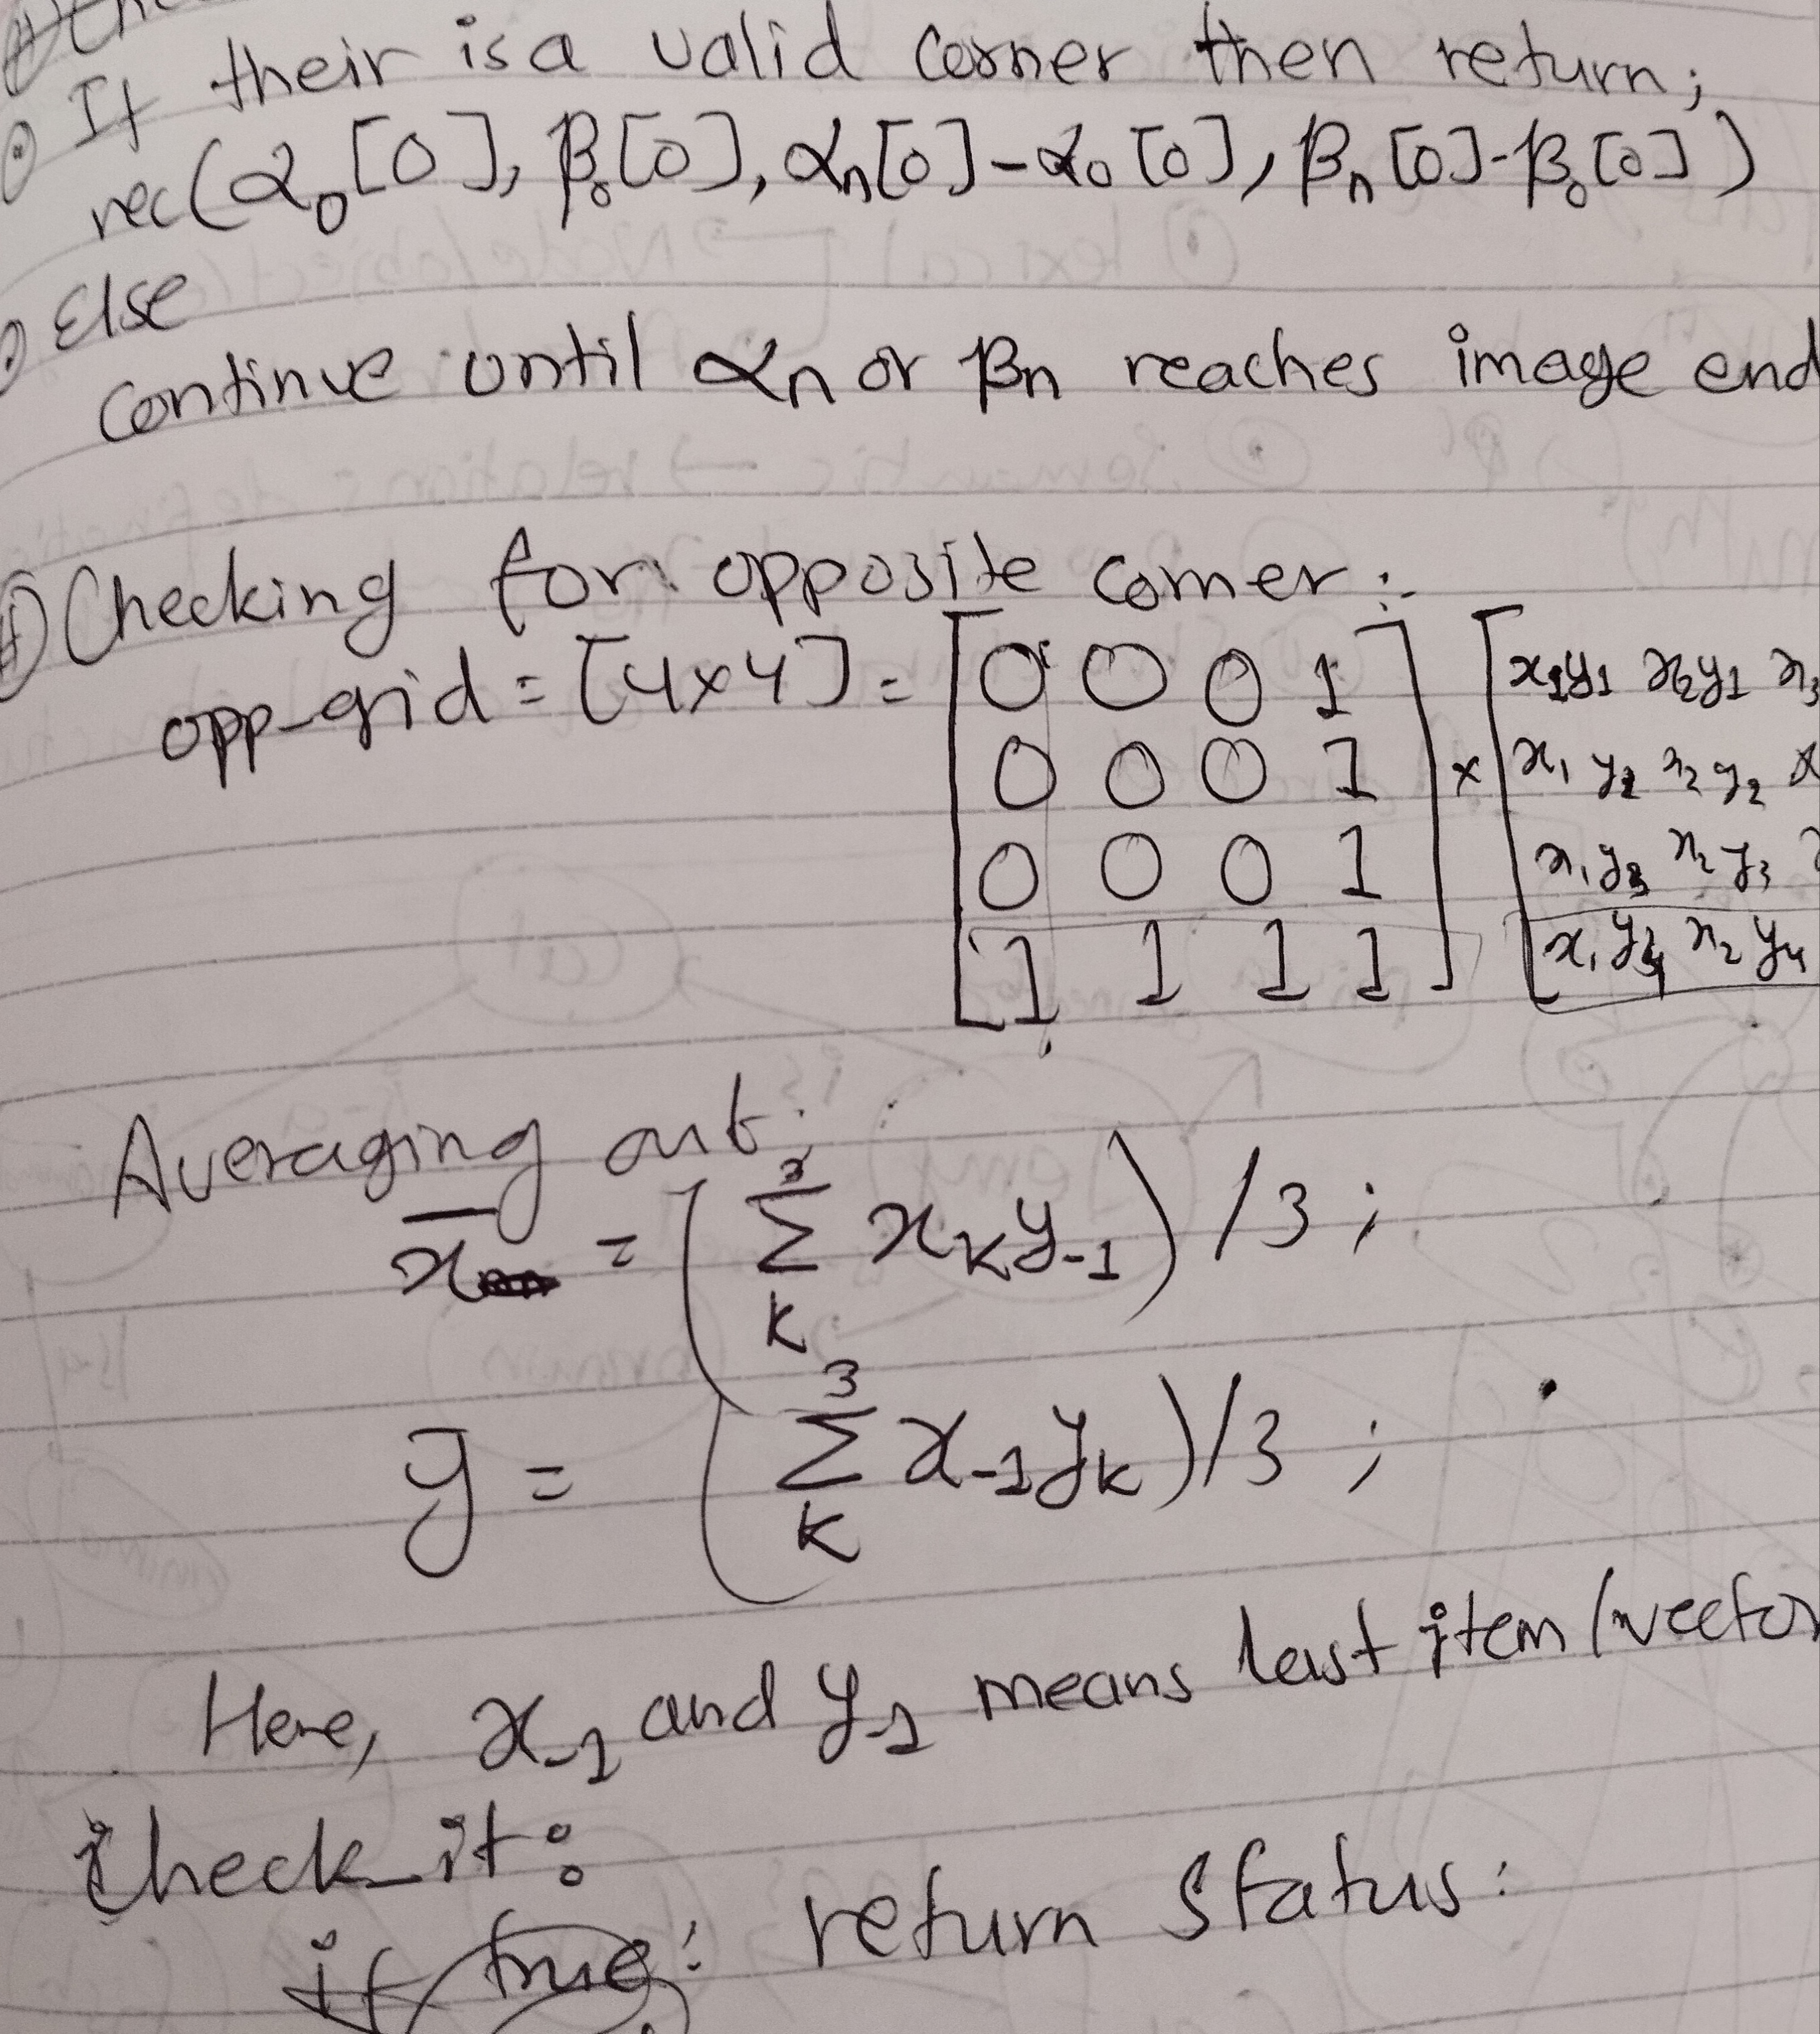 If their is a valid corner then return;
rec(α₀[0], β₀[0], αₙ[0]-α₀[0], βₙ[0]-β₀[0])
Else
continue until αn or βn reaches image end
Checking for opposite corner :-
opp-grid = [4x4] = [0 0 0 1] [x₁y₁ x₂y₁ x₃
0 0 0 1 × x₁y₂ x₂y₂ x
0 0 0 1 x₁y₃ x₂y₃
1 1 1 1 x₁y₄ x₂y₄
Averaging out;
x̄ = (Σ³ₖ xₖy₋₁)/3;
ȳ = (Σ³ₖ x₋₁yₖ)/3;
Here, x₋₁ and y₋₁ means last item (vector
check_it:
if true: return status: